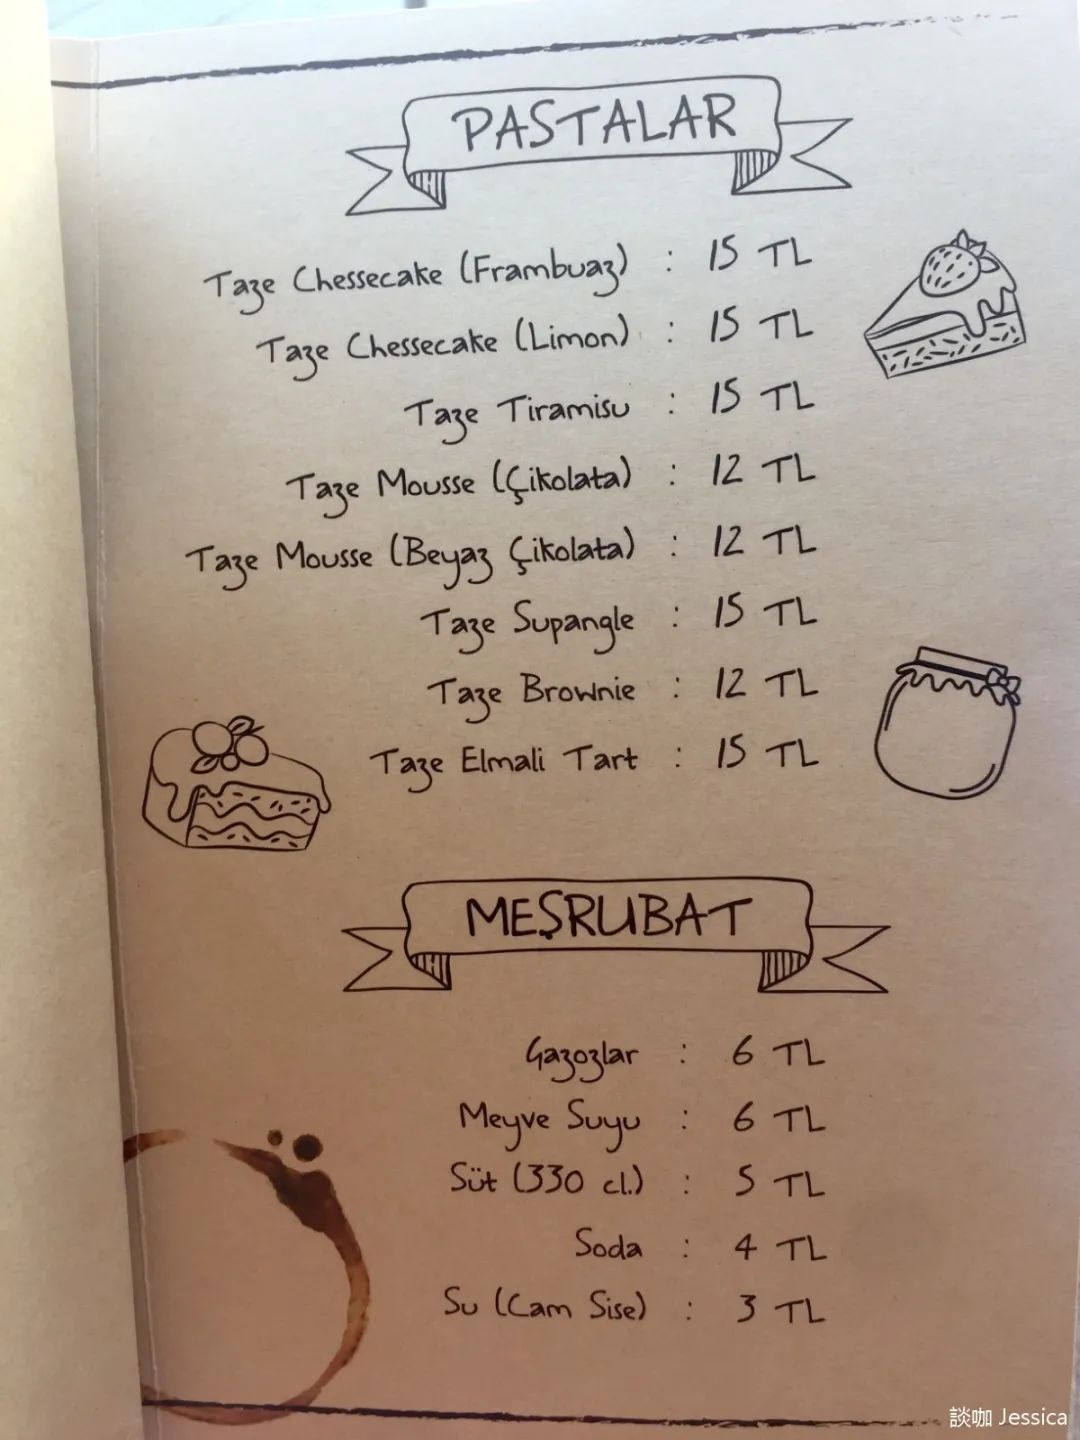 PASTALAR
Taze Chessecake (Frambuaz) : 15 TL
Taze Chessecake (Limon) : 15 TL
Taze Tiramisu : 15 TL
Taze Mousse (Çikolata) : 12 TL
Taze Mousse (Beyaz Çikolata) : 12 TL
Taze Supangle : 15 TL
Taze Brownie : 12 TL
Taze Elmali Tart : 15 TL
MEŞRUBAT
Gazozlar : 6 TL
Meyve Suyu : 6 TL
Süt (330 cl.) : 5 TL
Soda : 4 TL
Su (Cam Sise) : 3 TL
談咖 Jessica